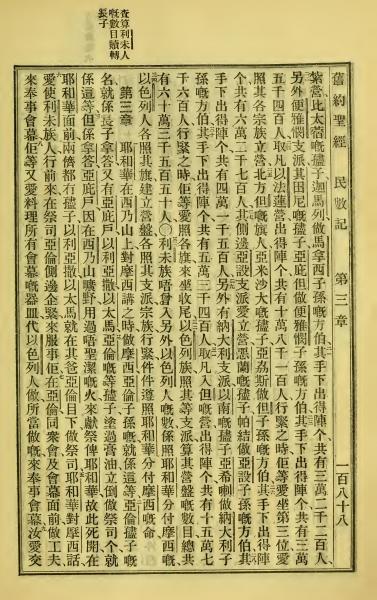 舊約聖經 民數記 第三章 一百八十八
紮營比太簭嘅儘子迦馬列做馬拿西子孫嘅方伯其手下出得陣个共有三萬二千二百人
另外便雅憫支派其田尼嘅儘子亞庇但做便雅憫子孫嘅方伯其手下出得陣个共有三萬
五千四百人取凡以法蓮營出得陣个共有十萬八千一百人行緊之時佢等愛坐第三位愛
照其各宗族立營北方但嘅旗人亞米沙大嘅儘子亞荔斯做但子孫嘅方伯其手下出得陣
个共有六萬二千七百人其側邊亞設支派愛立營恩蘭嘅儘子帕結做亞設子孫嘅方伯其
手下出得陣个共有四萬一千五百人另外有納大利支派以南嘅儘子亞希喇做納大利子
孫嘅方伯其手下出得陣个共有五萬三千四百人取凡入但嘅營出得陣个共有十五萬七
千六百人行緊之時佢等愛照各旗來坐收尾以色列族照其等支派算其營盤嘅數目總共
有六十萬三千五百五十人〇利未族唔曾入另外以色列人嘅數係照耶和華分付摩西嘅
以色列人各照其旗建立營盤各照其支派宗族行緊件件遵照耶和華分付摩西嘅命
查算利未人
嘅數目贖轉
長子
第三章 耶和華在西乃山上對摩西講之時做摩西亞倫子孫嘅就係這等亞倫儘子嘅
名就係長子拿答又有亞庇戶以利亞撒以太馬亞倫嘅等儘子塗過膏油立倒做祭司个就
係這等但係拿答亞庇戶因在西乃山曠野用過唔聖潔嘅火來獻祭俾耶和華故此死開在
耶和華面前兩儕都冇儘子以利亞撒以太馬就在其爸亞倫目下做祭司耶和華對摩西話
愛使利未族人行前來在祭司亞倫側邊企緊來服事佢在亞倫同衆會及會幕面前做工夫
來奉事會幕佢等又愛料理所有會幕嘅器皿代以色列人做所當做嘅來奉事會幕汝愛交